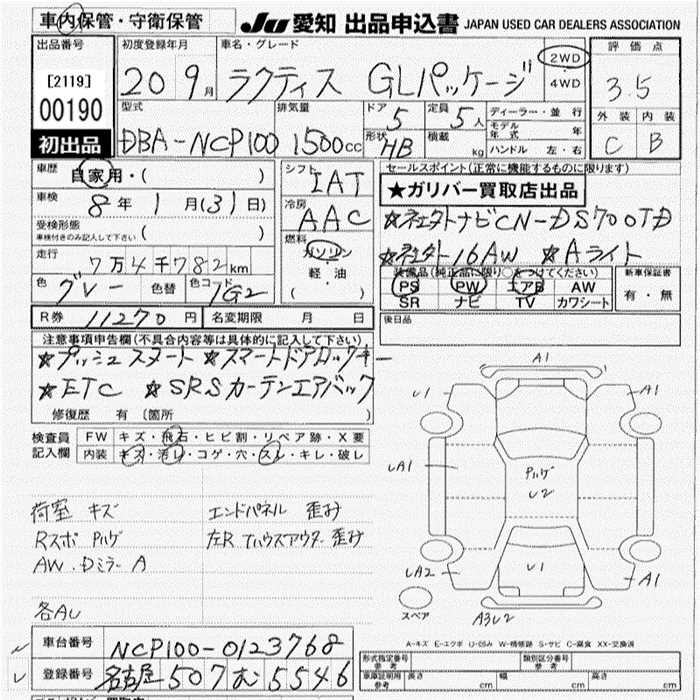 車内保管・守衛保管
JU 愛知 出品申込書 JAPAN USED CAR DEALERS ASSOCIATION
出品番号
[2119]
00190
初出品
初度登録年月
20 9月
車名・グレード
ラクティス GLパッケージ
2WD
・
4WD
評価点
3.5
外装 内装
C B
型式
DBA-NCP100
排気量
1500cc
ドア
5
定員
5人
形状
HB
積載
kg
ディーラー・並行
モデル年式 年
ハンドル 左・右
車歴
自家用・( )
車検
8年 1月(31)日
受検形態
車検付きのみ記入して下さい ( )
走行
7万4千782km
色
グレー
色替
色コード
1G2
シフト
IAT
冷房
AAC
燃料
ガソリン
軽・油
( )
セールスポイント(正常に機能するものに限ります)
★ガリバー買取店出品
★社外ナビCN-DS700TD
★社外16AW ★Aライト
装備品(純正品に限り○をつけてください)
PS PW エアB AW
SR ナビ TV カワシート
新車保証書
有・無
R券 11270円
名変期限 月 日
後日品
注意事項申告欄(不具合内容等は具体的に記入して下さい)
★プッシュスタート ★スマートドアロックキー
★ETC ★SRSカーテンエアバック
修復歴 有 〔箇所 〕
検査員
記入欄
FW キズ・飛石・ヒビ割・リペア跡・X要
内装 キズ・汚レ・コゲ・穴・スレ・キレ・破レ
荷室 キズ
Rスポ ハゲ
AW・Dミラー A
各AU
エンドパネル 歪み
左R Tハウスアウター 歪み
A1
U1
A1
UA1
ハゲ
U2
U1
UA2
A1
スペア
A3U2
A-キズ E-エクボ U-凹み W-補修跡 S-サビ C-腐食 XX-交換済
車台番号
NCP100-0123768
登録番号
名古屋 507 む 5546
形式指定番号
参考
類別区分番号
参考
車庫証明用
参考
長さ cm
幅 cm
高さ cm